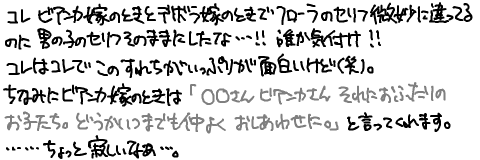 コレ ビアンカ嫁のときとデボラ嫁のときでフローラのセリフ微妙に違ってる
のに 男の子のセリフそのままにしたな…!! 誰か気付け!!
コレはコレで このすれちがいっぷりが面白いけど(笑)。
ちなみにビアンカ嫁のときは「○○さん ビアンカさん それにおふたりの
お子たち。どうかいつまでも仲よく おしあわせに。」と言ってくれます。
……ちょっと寂しいなぁ…。